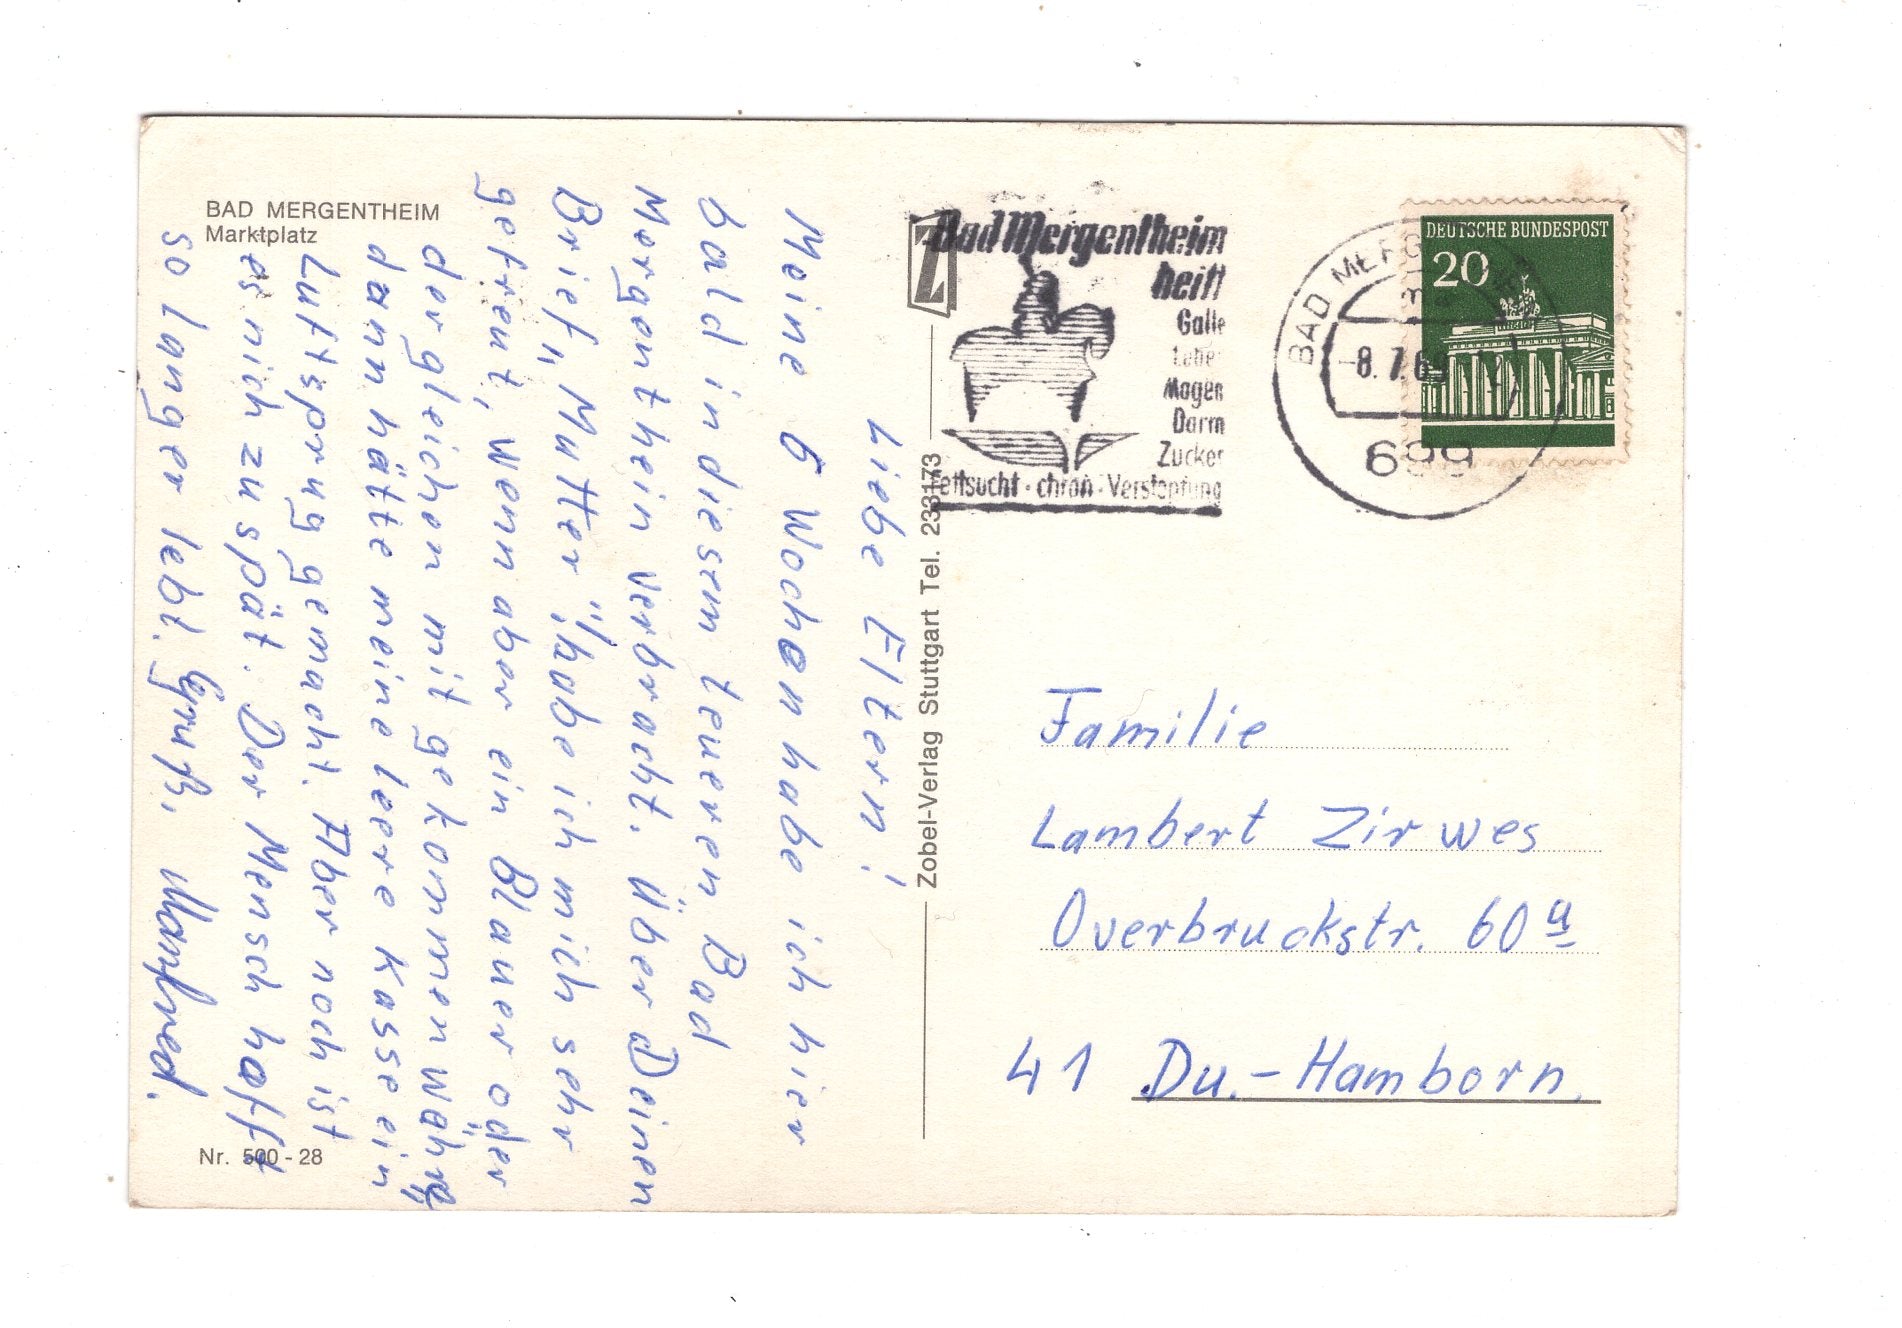 BAD MERGENTHEIM
Marktplatz
Liebe Eltern!
Meine 6 Wochen habe ich hier
bald in diesem teueren Bad
Mergenthein verbracht. Über Deinen
Brief „Mutter" habe ich mich sehr
gefreut, wenn aber ein Blauer oder
dergleichen mitgekommen wäre,
dann hätte meine leere Kasse ein
Luftsprung gemacht. Aber noch ist
es nich zu spät. Der Mensch hofft
so langer lebt. Gruß, Manfred.
Nr. 500 - 28
Zobel-Verlag Stuttgart Tel. 233173
Z
Bad Mergentheim
heilt
Galle
Leber
Magen
Darm
Zucker
Fettsucht · chron · Verstopfung
BAD MERG
-8. 7. 69
699
DEUTSCHE BUNDESPOST
20
Familie
Lambert Zirwes
Overbruckstr. 60 a
41 Du.-Hamborn.